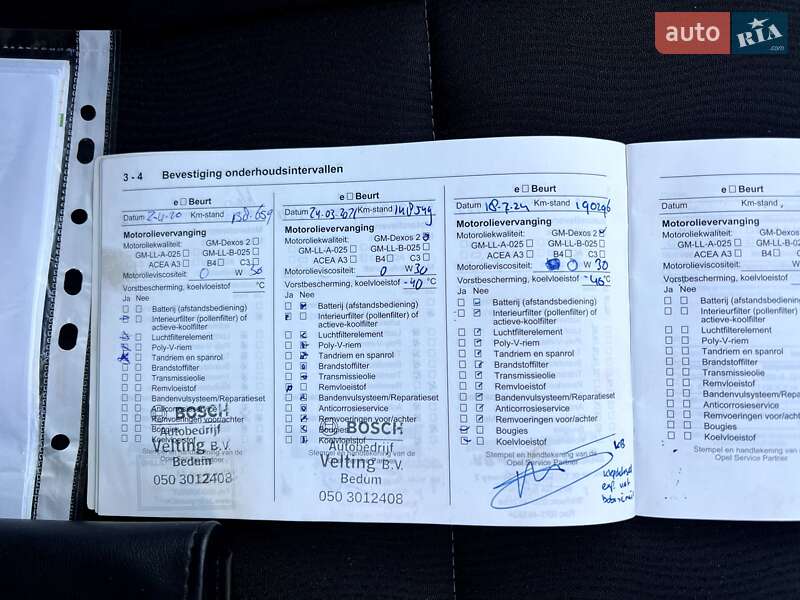 auto RIA.com
3 - 4 Bevestiging onderhoudsintervallen
e Beurt
Datum 2-4-20 Km-stand
Motorolievervanging
Motoroliekwaliteit: GM-Dexos 2
GM-LL-A-025 GM-LL-B-025
ACEA A3 B4 C3
Motorolieviscositeit: 0 W 30
Vorstbescherming, koelvloeistof °C
Ja Nee
Batterij (afstandsbediening)
Interieurfilter (pollenfilter) of
actieve-koolfilter
Luchtfilterelement
Poly-V-riem
Tandriem en spanrol
Brandstoffilter
Transmissieolie
Remvloeistof
Bandenvulsysteem/Reparatieset
Anticorrosieservice
Remvoeringen voor/achter
Bougies
Koelvloeistof
Stempel en handtekening van de
Opel Service Partner
BOSCH
Autobedrijf
Velting B.V.
Bedum
050 3012408
e Beurt
Datum 24.03.2021 Km-stand
Motorolievervanging
Motoroliekwaliteit: GM-Dexos 2
GM-LL-A-025 GM-LL-B-025
ACEA A3 B4 C3
Motorolieviscositeit: 0 W 30
Vorstbescherming, koelvloeistof -40 °C
Ja Nee
Batterij (afstandsbediening)
Interieurfilter (pollenfilter) of
actieve-koolfilter
Luchtfilterelement
Poly-V-riem
Tandriem en spanrol
Brandstoffilter
Transmissieolie
Remvloeistof
Bandenvulsysteem/Reparatieset
Anticorrosieservice
Remvoeringen voor/achter
Bougies
Koelvloeistof
Stempel en handtekening van de
BOSCH
Autobedrijf
Velting B.V.
Bedum
050 3012408
e Beurt
Datum 18.7.24 Km-stand 190296
Motorolievervanging
Motoroliekwaliteit: GM-Dexos 2
GM-LL-A-025 GM-LL-B-025
ACEA A3 B4 C3
Motorolieviscositeit: 0 W 30
Vorstbescherming, koelvloeistof °C
Ja Nee
Batterij (afstandsbediening)
Interieurfilter (pollenfilter) of
actieve-koolfilter
Luchtfilterelement
Poly-V-riem
Tandriem en spanrol
Brandstoffilter
Transmissieolie
Remvloeistof
Bandenvulsysteem/Reparatieset
Anticorrosieservice
Remvoeringen voor/achter
Bougies
Koelvloeistof
Stempel en handtekening van de
Opel Service Partner
e Beurt
Datum Km-stand
Motorolievervanging
Motoroliekwaliteit: GM-Dexos
GM-LL-A-025 GM-LL-B-02
ACEA A3 B4 C3
Motorolieviscositeit: W
Vorstbescherming, koelvloeistof
Ja Nee
Batterij (afstandsbediening
Interieurfilter (pollenfilter)
actieve-koolfilter
Luchtfilterelement
Poly-V-riem
Tandriem en spanrol
Brandstoffilter
Transmissieolie
Remvloeistof
Bandenvulsysteem/Repa
Anticorrosieservice
Remvoeringen voor/acht
Bougies
Koelvloeistof
Stempel en handtekening va
Opel Service Partner